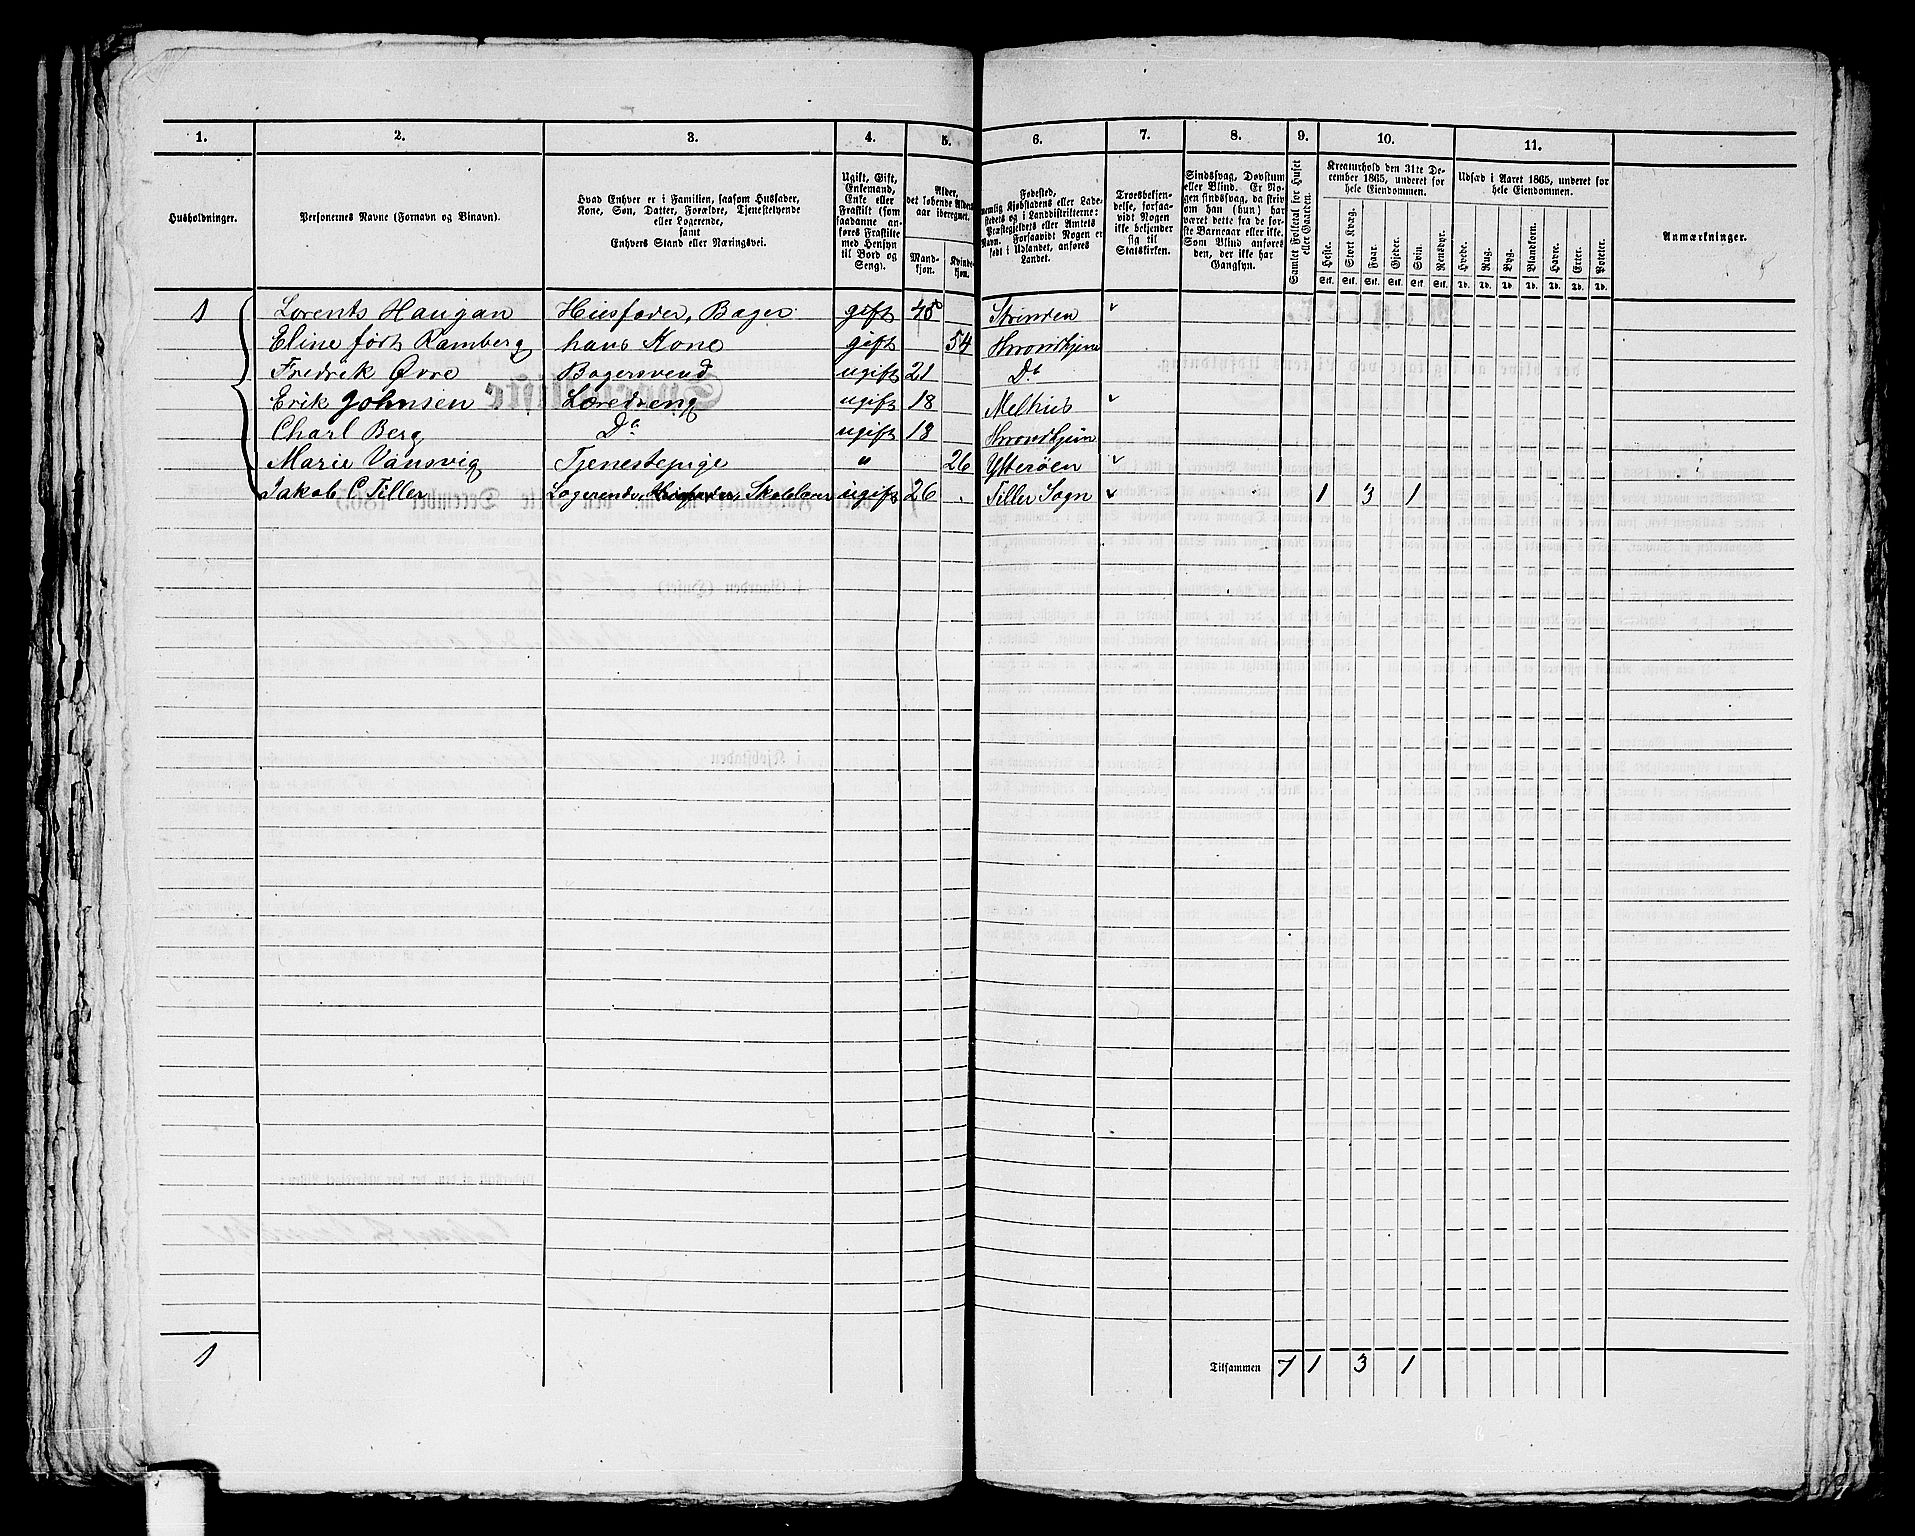 1. 2. 3. 4. 5. 6. 7. 8. 9. 10. 11.
Husholdninger.
Personernes Navne (Fornavn og Binavn).
Hvad Enhver er i Familien, saasom Husfader,
Kone, Søn, Datter, Forældre, Tjenestetyende
eller Logerende,
samt
Enhvers Stand eller Næringsvei.
Ugift, Gift,
Enkemand,
Enke eller
Fraskilt (som
saadanne an-
føres Fraskilte
med Hensyn
til Bord og
Seng).
Alder,
det løbende Alders-
aar iberegnet.
Mand-
kjøn.
Kvinde-
kjøn.
Fødested,
nemlig Kjøbstadens eller Lade-
stedets og i Landdistrikterne:
Præstegjeldets eller Amtets
Navn. Forsaavidt Nogen er
født i Udlandet, anføres
Landet.
Troesbekjen-
delse, forsaa-
vidt Nogen
ikke bekjender
sig til
Statskirken.
Sindssvag, Døvstum
eller Blind. Er No-
gen sindssvag, da skriv
om han (hun) har
været dette fra de før-
ste Barneaar eller ikke.
Som Blind anføres
den, der ikke har
Gangsyn.
Samlet Folketal for Huset
eller Gaarden.
Kreaturhold den 31te De-
cember 1865, underet for
hele Eiendommen.
Heste. Stort Kvæg. Faar. Gjeder. Svin. Rensdyr.
Stk. Stk. Stk. Stk. Stk. Stk.
Udsæd i Aaret 1865, underet for
hele Eiendommen.
Hvede. Rug. Byg. Blandkorn. Havre. Erter. Poteter.
Td. Td. Td. Td. Td. Td. Td.
Anmærkninger.
1 Lorents Haugan Husfader, Bager gift 45 Strinden
Eline født Ramberg hans Kone gift 54 Throndhjem
Fredrik Øvre Bagersvend ugift 21 Do
Erik Johnsen Læredreng ugift 18 Melhus
Charl Berg Do ugift 18 Throndhjem
Marie Vansvig Tjenestepige " 26 Ytterøen
Jakob C Tiller Logerende, Skolelærer ugift 26 Tiller Sogn 1 3 1
1 Tilsammen 7 1 3 1